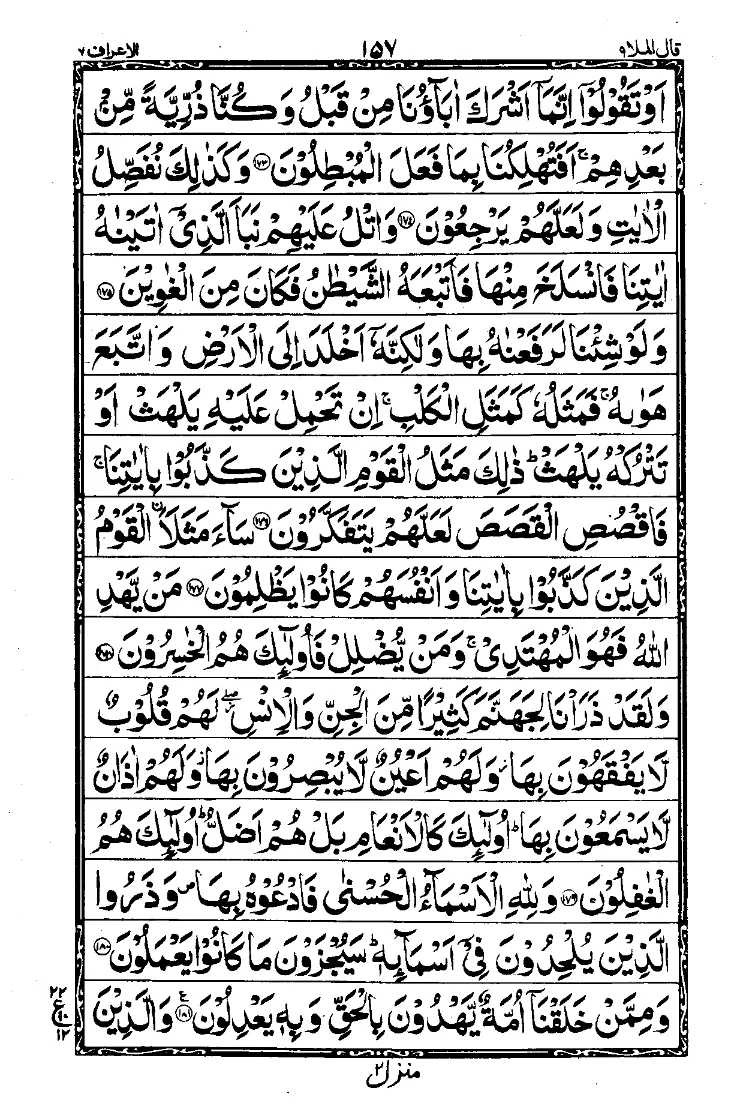 قال الملا ٩ ١٥٧ الاعراف ٧
اَوْ تَقُوْلُوْۤا اِنَّمَاۤ اَشْرَكَ اٰبَآؤُنَا مِنْ قَبْلُ وَ كُنَّا ذُرِّیَّةً مِّنْۢ
بَعْدِهِمْ ۚ اَفَتُهْلِكُنَا بِمَا فَعَلَ الْمُبْطِلُوْنَ ﴿۱۷۳﴾ وَ كَذٰلِكَ نُفَصِّلُ
الْاٰیٰتِ وَ لَعَلَّهُمْ یَرْجِعُوْنَ ﴿۱۷۴﴾ وَ اتْلُ عَلَیْهِمْ نَبَاَ الَّذِیْۤ اٰتَیْنٰهُ
اٰیٰتِنَا فَانْسَلَخَ مِنْهَا فَاَتْبَعَهُ الشَّیْطٰنُ فَكَانَ مِنَ الْغٰوِیْنَ ﴿۱۷۵﴾
وَ لَوْ شِئْنَا لَرَفَعْنٰهُ بِهَا وَ لٰكِنَّهٗۤ اَخْلَدَ اِلَی الْاَرْضِ وَ اتَّبَعَ
هَوٰىهُ ۚ فَمَثَلُهٗ كَمَثَلِ الْكَلْبِ ۚ اِنْ تَحْمِلْ عَلَیْهِ یَلْهَثْ اَوْ
تَتْرُكْهُ یَلْهَثْ ؕ ذٰلِكَ مَثَلُ الْقَوْمِ الَّذِیْنَ كَذَّبُوْا بِاٰیٰتِنَا ۚ
فَاقْصُصِ الْقَصَصَ لَعَلَّهُمْ یَتَفَكَّرُوْنَ ﴿۱۷۶﴾ سَآءَ مَثَلَا ۟الْقَوْمُ
الَّذِیْنَ كَذَّبُوْا بِاٰیٰتِنَا وَ اَنْفُسَهُمْ كَانُوْا یَظْلِمُوْنَ ﴿۱۷۷﴾ مَنْ یَّهْدِ
اللّٰهُ فَهُوَ الْمُهْتَدِیْ ۚ وَ مَنْ یُّضْلِلْ فَاُولٰٓىِٕكَ هُمُ الْخٰسِرُوْنَ ﴿۱۷۸﴾
وَ لَقَدْ ذَرَاْنَا لِجَهَنَّمَ كَثِیْرًا مِّنَ الْجِنِّ وَ الْاِنْسِ ۖؗ لَهُمْ قُلُوْبٌ
لَّا یَفْقَهُوْنَ بِهَا ؗ وَ لَهُمْ اَعْیُنٌ لَّا یُبْصِرُوْنَ بِهَا ؗ وَ لَهُمْ اٰذَانٌ
لَّا یَسْمَعُوْنَ بِهَا ؕ اُولٰٓىِٕكَ كَالْاَنْعَامِ بَلْ هُمْ اَضَلُّ ؕ اُولٰٓىِٕكَ هُمُ
الْغٰفِلُوْنَ ﴿۱۷۹﴾ وَ لِلّٰهِ الْاَسْمَآءُ الْحُسْنٰی فَادْعُوْهُ بِهَا ۪ وَ ذَرُوا
الَّذِیْنَ یُلْحِدُوْنَ فِیْۤ اَسْمَآىِٕهٖ ؕ سَیُجْزَوْنَ مَا كَانُوْا یَعْمَلُوْنَ ﴿۱۸۰﴾
وَ مِمَّنْ خَلَقْنَاۤ اُمَّةٌ یَّهْدُوْنَ بِالْحَقِّ وَ بِهٖ یَعْدِلُوْنَ ﴿۱۸۱﴾ ع وَ الَّذِیْنَ
٢٢
ع
١٢
منزل ٢